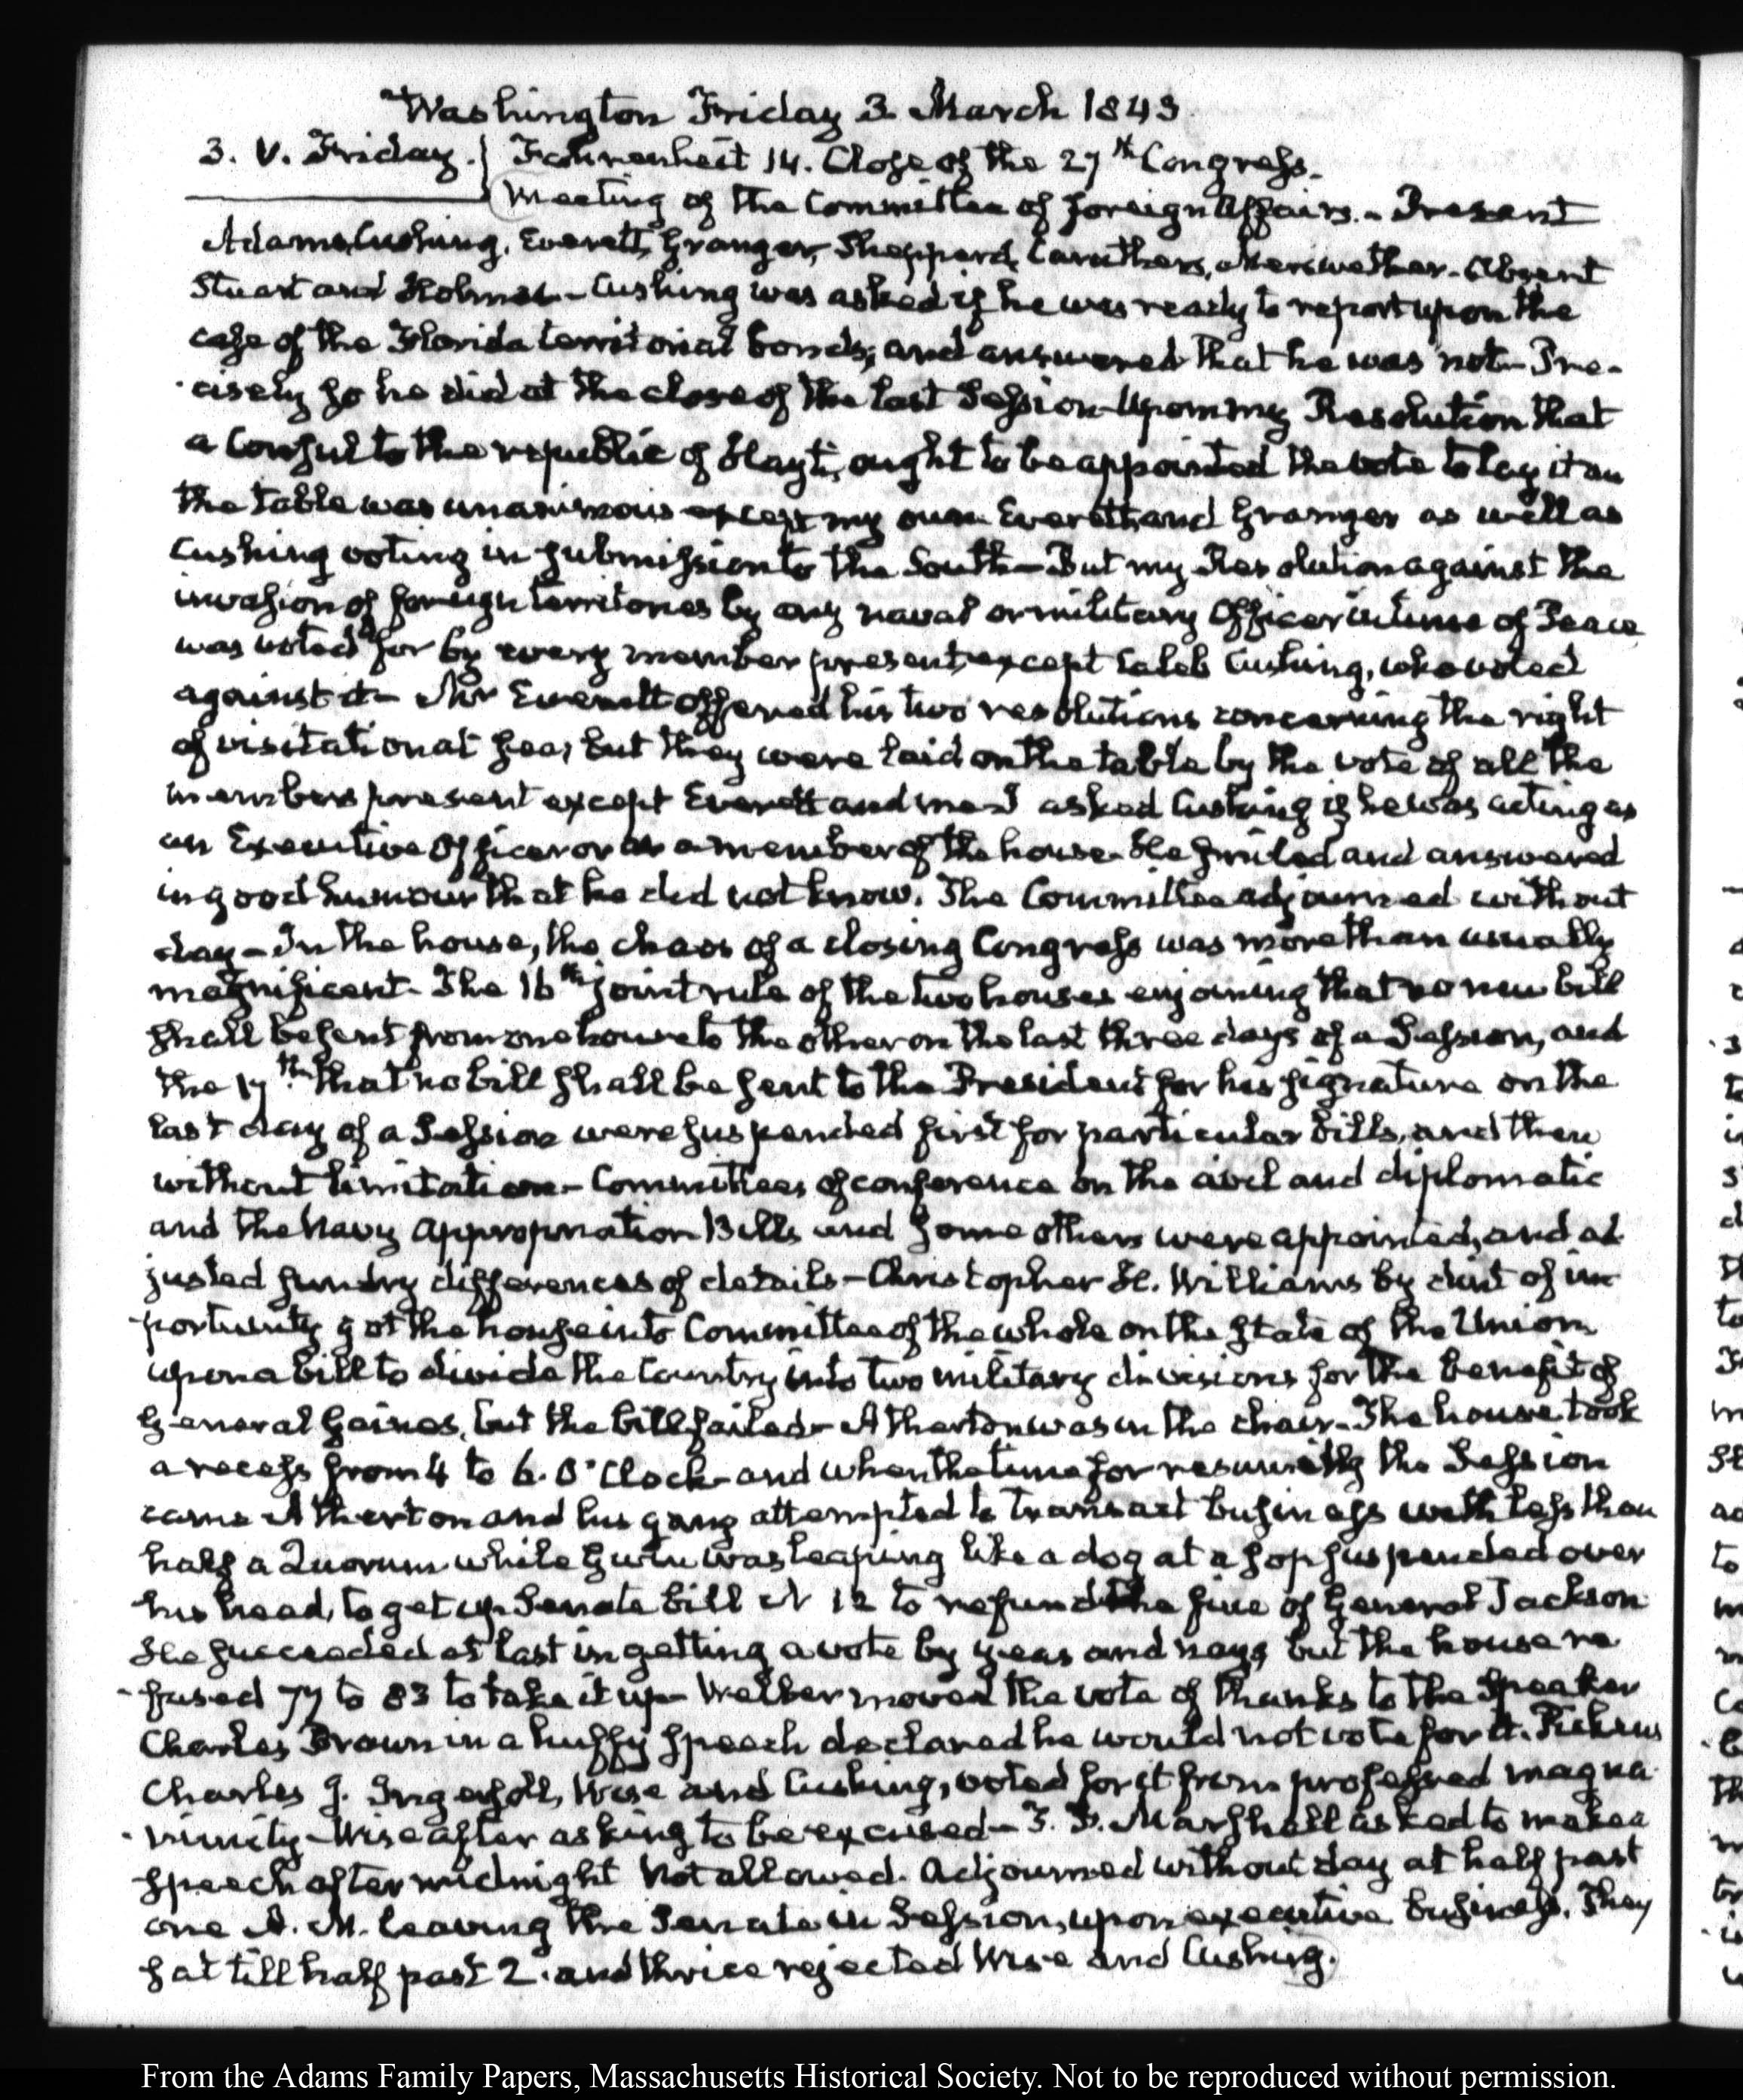 Washington Friday 3. March 1843
3. V. Friday. Fahrenheit 14. Close of the 27th Congress.
Meeting of the Committee of foreign Affairs. - Present
Adams, Cushing, Everett, Granger, Sheppard, Caruthers, Meriwether - Absent
Stuart and Holmes - Cushing was asked if he was ready to report upon the
case of the Florida territorial bonds; and answered that he was not - Pre-
cisely so he did at the close of the last Session - Upon my Resolution that
a Consul to the republic of Hayti, ought to be appointed the vote to lay it on
the table was unanimous except my own Everett, and Granger as well as
Cushing voting in submission to the South - But my Resolution against the
invasion of foreign territories by any naval or military Officer in time of Peace
was voted for by every member present, except Caleb Cushing, who voted
against it - Mr Everett offered his two resolutions concerning the right
of visitation at sea, but they were laid on the table by the vote of all the
members present except Everett and me - I asked Cushing if he was acting as
an Executive Officer or as a member of the house - He smiled and answered
in good humour that he did not know. The Committee adjourned without
day - In the house, the chaos of a closing Congress was more than usually
magnificent - The 16th joint rule of the two houses enjoining that no new bill
shall be sent from one house to the other on the last three days of a Session, and
the 17th that no bill shall be sent to the President for his signature on the
last day of a Session were suspended first for particular bills, and then
without limitation - Committees of conference on the civil and diplomatic
and the Navy appropriation Bills and some others were appointed, and ad
justed sundry differences of details - Christopher H. Williams by dint of im
portunity got the house into Committee of the whole on the state of the Union
upon a bill to divide the Country into two military divisions for the benefit of
General Gaines, but the bill failed - Atherton was in the chair - The house took
a recess from 4 to 6. O'Clock - and when the time for resuming the Session
came Atherton and his gang attempted to transact business with less than
half a Quorum while Gwin was leaping like a dog at a sop suspended over
his head, to get up Senate bill N 12 to refund the fine of General Jackson
He succeeded at last in getting a vote by yeas and nays, but the house re
fused 77 to 83 to take it up - Weller moved the vote of thanks to the Speaker
Charles Brown in a huffy speech declared he would not vote for it. Pickens
Charles J. Ingersoll, Wise and Cushing, voted for it from professed magna
nimity - Wise after asking to be excused - T. F. Marshall asked to make a
speech after midnight Not allowed. Adjourned without day at half past
one A. M. leaving the Senate in Session, upon executive business. They
sat till half past 2. and thrice rejected Wise and Cushing.
From the Adams Family Papers, Massachusetts Historical Society. Not to be reproduced without permission.